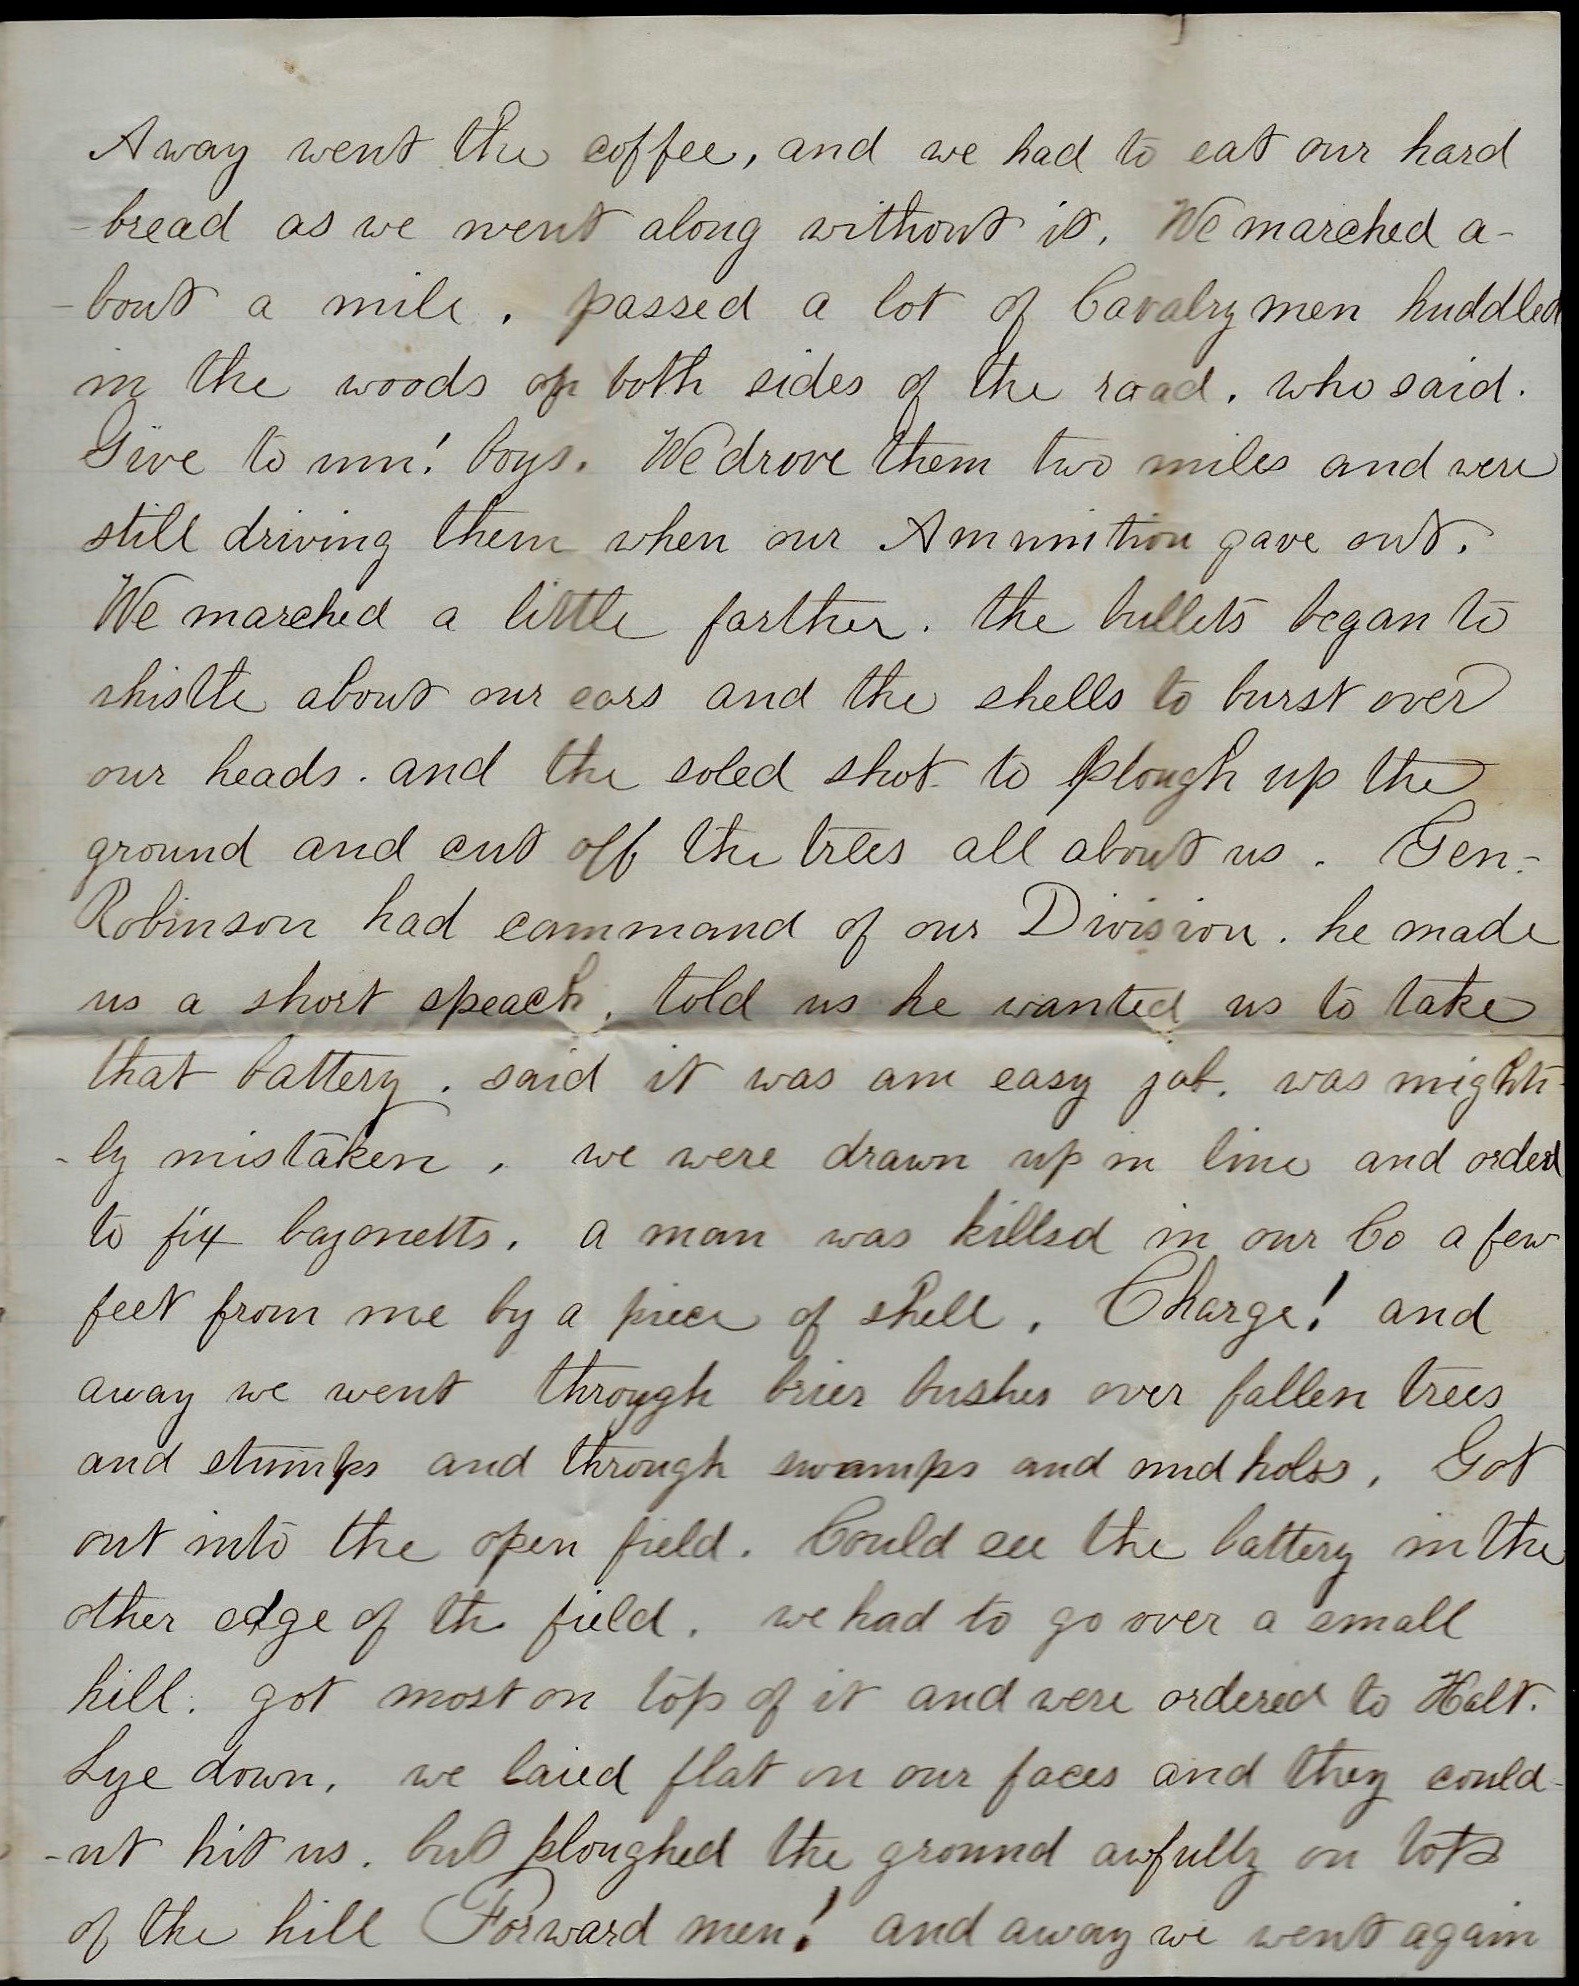 Away went the coffee, and we had to eat our hard
-bread as we went along without it. We marched a-
-bout a mile. passed a lot of Cavalry men huddled
in the woods on both sides of the road. who said.
Give to um! boys. We drove them two miles and were
still driving them when our Ammunition gave out.
We marched a little farther. the bullets began to
whistle about our ears and the shells to burst over
our heads. and the soled shot to plough up the
ground and cut off the trees all about us. Gen-
Robinson had command of our Division. he made
us a short speach, told us he wanted us to take
that battery. said it was an easy job. was mighti-
-ly mistaken, we were drawn up in line and orderd
to fix bayonetts. a man was killed in our Co a few
feet from me by a piece of shell. Charge! and
away we went through brier bushes over fallen trees
and stumps and through swamps and mud holes. Got
out into the open field. Could see the battery in the
other edge of the field. we had to go over a small
hill. got most on top of it and were ordered to Halt.
Lye down. we laied flat on our faces and they could-
-nt hit us. but ploughed the ground awfully on top
of the hill Forward men! and away we went again